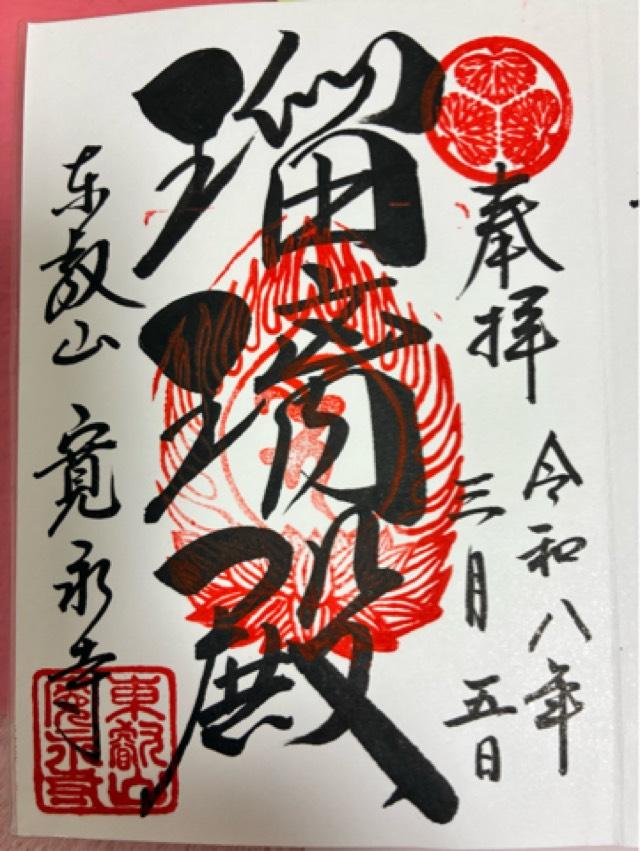 奉拝
令和八年
三月五日
瑠璃殿
東叡山 寛永寺
東叡山
寛永寺